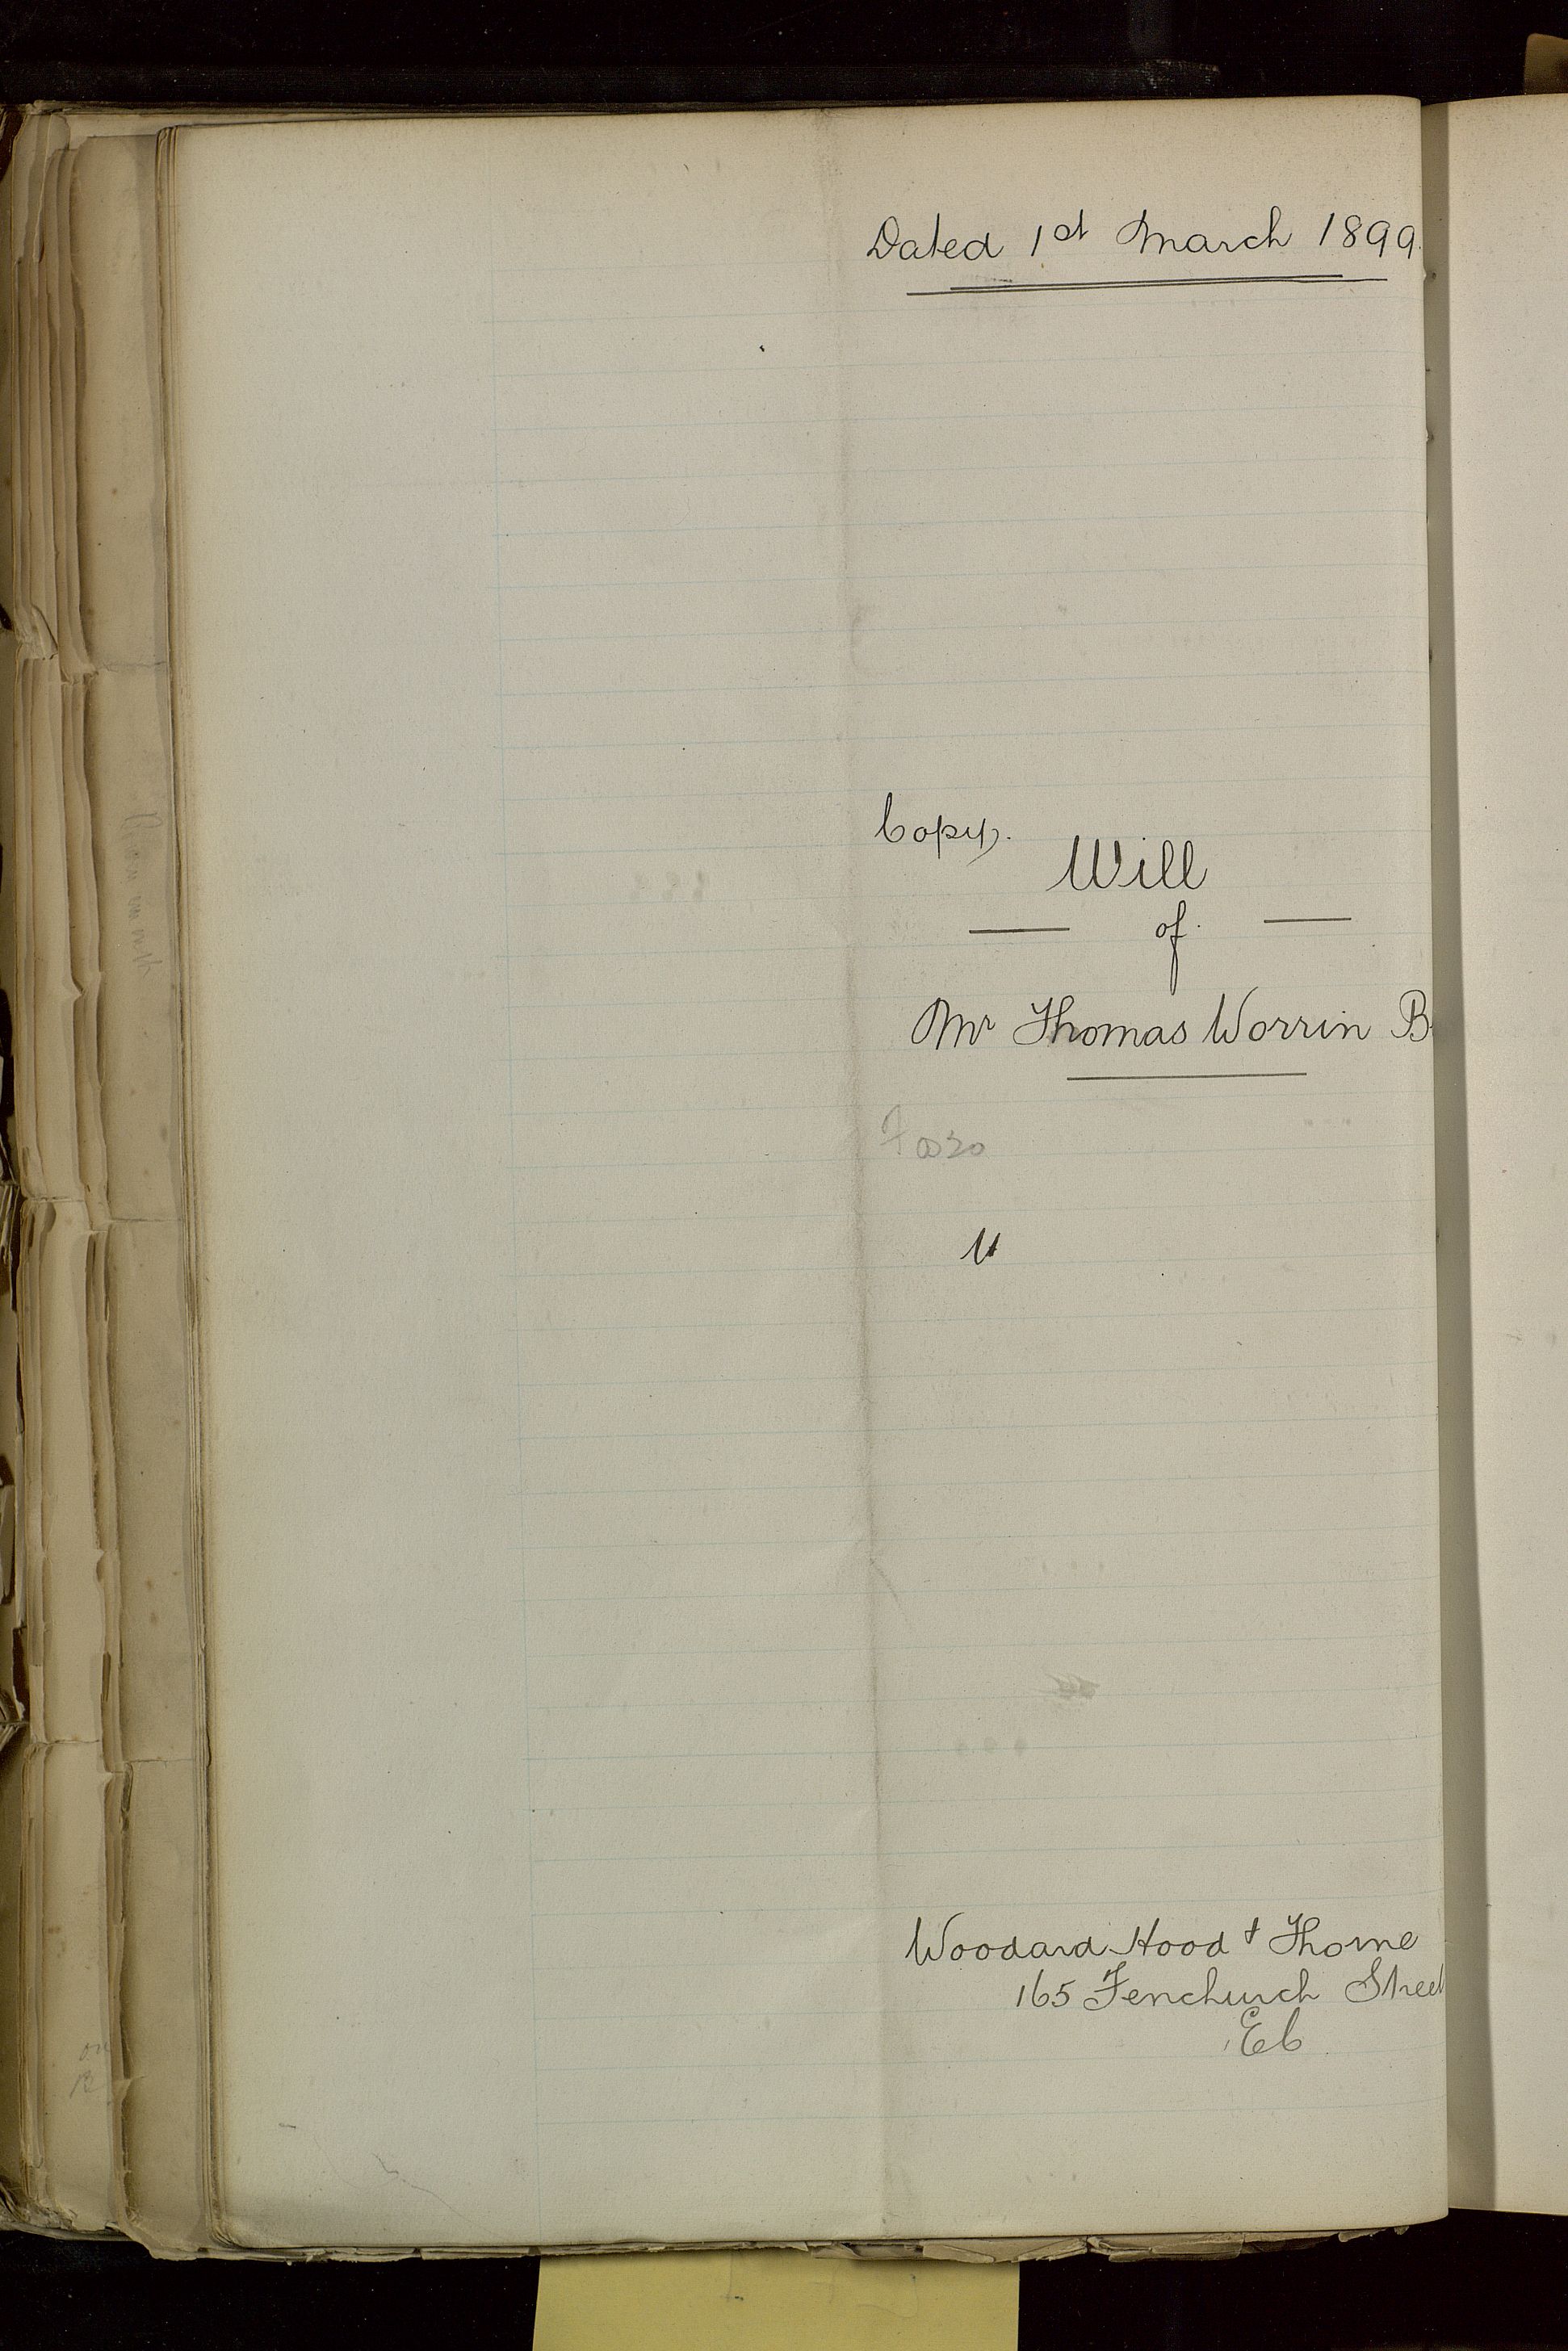 Dated 1st March 1899.
Copy.
Will
of
Mr Thomas Worrin B
Woodard Hood & Thorne
165 Fenchurch Street
EC